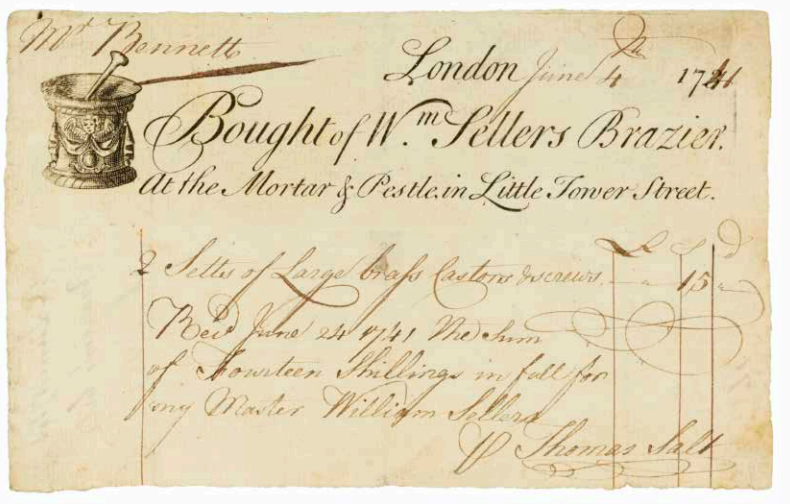 Mr Bennett
London June 4th 1741
Bought of Wm. Sellers Brazier.
At the Mortar & Pestle in Little Tower Street.
£ S d
2 Setts of Large brass Castors & screws - " 15 "
Recd June 24 1741 the Sum
of Fourteen Shillings in full for
my Master William Sellers
Thomas Salt